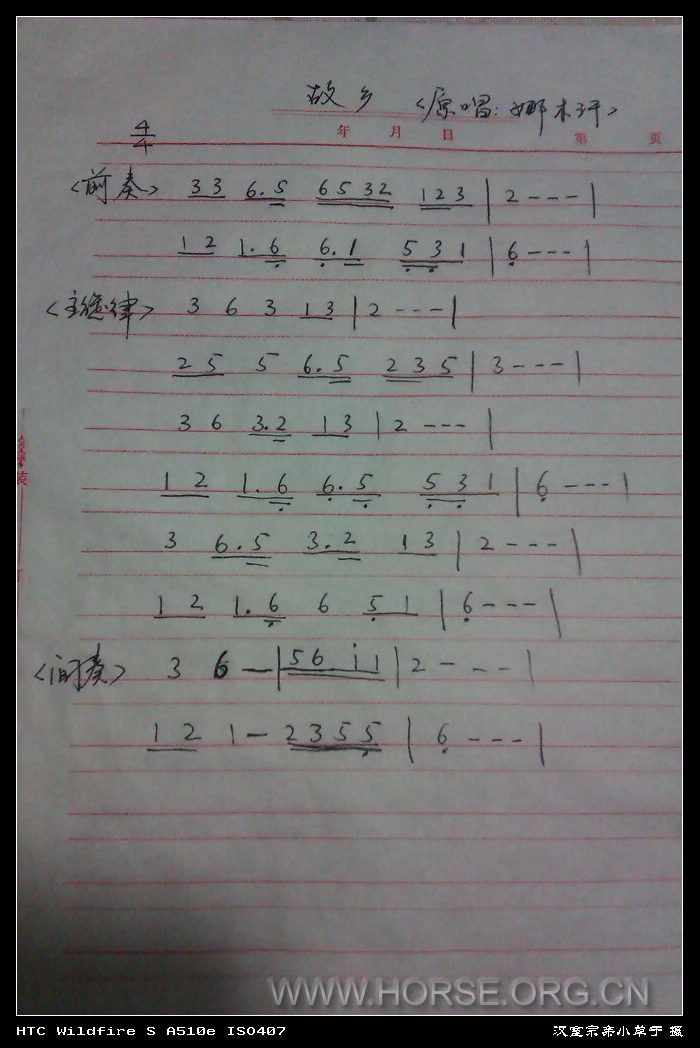 故乡 〈原唱:娜木汗〉
4/4
年 月 日 第 页
〈前奏〉 33 6.5 6532 123 | 2 - - - |
12 1.6 6.1 531 | 6 - - - |
〈主旋律〉 3 6 3 13 | 2 - - - |
25 5 6.5 235 | 3 - - - |
3 6 3.2 13 | 2 - - - |
12 1.6 6.5 531 | 6 - - - |
3 6.5 3.2 13 | 2 - - - |
12 1.6 6 51 | 6 - - - |
〈间奏〉 3 6 — | 56 i1 | 2 - - - |
12 1 — 2355 | 6 - - - |
WWW.HORSE.ORG.CN
HTC Wildfire S A510e ISO407
汉室宗亲小草于 摄